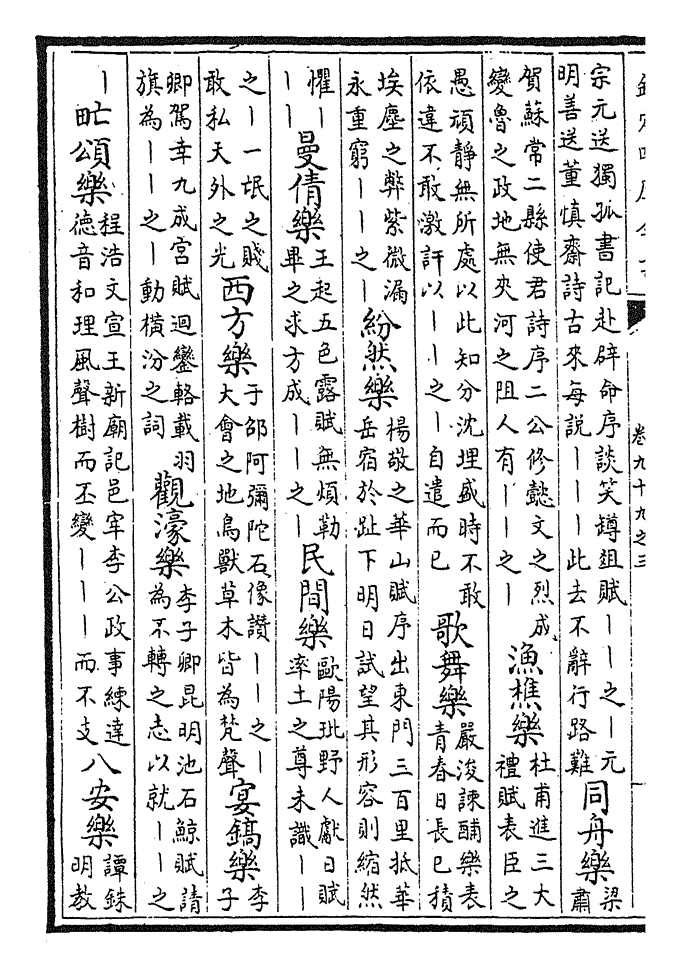 欽定四庫全書
卷九十九之三
宗元送獨孤書記赴辟命序談笑罇俎賦——之—元
明善送董慎齋詩古來每說———此去不辭行路難
同舟樂
梁
肅
賀蘇常二縣使君詩序二公修懿文之烈成
變魯之政地無夾河之阻人有——之—
漁樵樂
杜甫進三大
禮賦表臣之
愚頑靜無所處以此知分沈埋盛時不敢
依違不敢激訐以——之—自遣而已
歌舞樂
嚴浚諫酺樂表
青春日長已積
埃塵之弊紫微漏
永重窮——之—
紛然樂
楊敬之華山賦序出東門三百里抵華
岳宿於趾下明日試望其形容則縮然
懼—
——
曼倩樂
王起五色露賦無煩勒
畢之求方成——之—
民間樂
歐陽玭野人獻日賦
率土之尊未識——
之—一氓之賤
敢私天外之光
西方樂
于邵阿彌陀石像讚——之—
大會之地鳥獸草木皆為梵聲
宴鎬樂
李
子
卿駕幸九成宮賦迴鑾輅載羽
旗為——之—動橫汾之詞
觀濠樂
李子卿昆明池石鯨賦請
為不轉之志以就——之
—
甿頌樂
程浩文宣王新廟記邑宰李公政事練達
德音和理風聲樹而丕變———而不支
八安樂
譚銖
明教